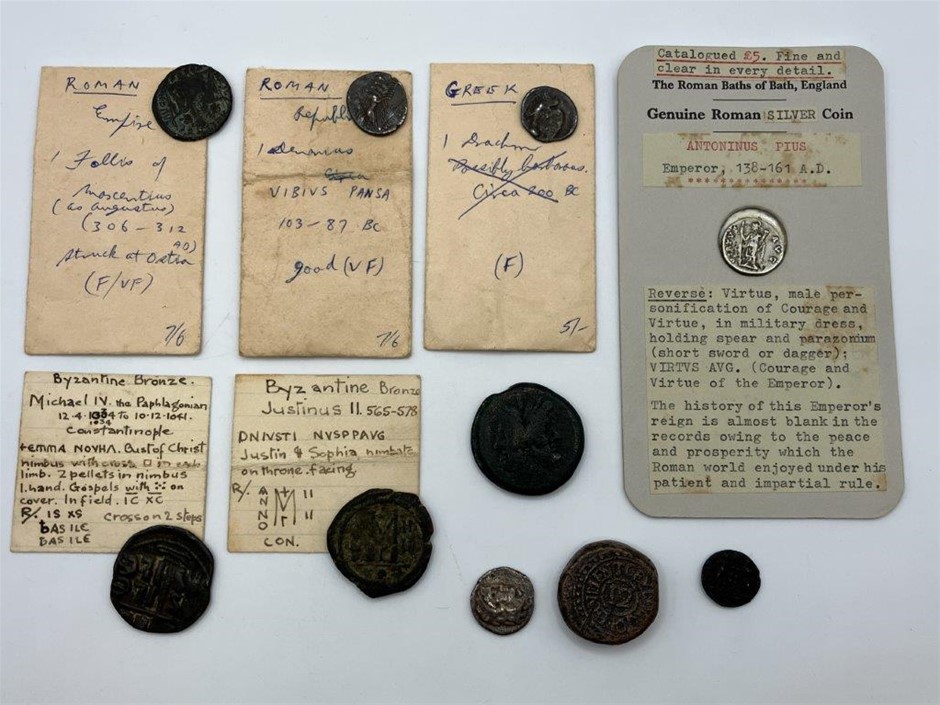 ROMAN
Empire
1 Follis of
Maxentius
(as Augustus)
(306 – 312
AD)
Struck at Ostia
(F/VF)
7/6
ROMAN
Republic
1 Denarius
VIBIVS PANSA
103 – 87 BC
good (VF)
7/6
GREEK
1 Drachm
Possibly barbarous.
Circa 200 BC
(F)
5/-
Catalogued £5. Fine and
clear in every detail.
The Roman Baths of Bath, England
Genuine Roman SILVER Coin
ANTONINUS PIUS
Emperor, 138-161 A.D.
Reverse: Virtus, male per-
sonification of Courage and
Virtue, in military dress,
holding spear and parazonium
(short sword or dagger);
VIRTVS AVG. (Courage and
Virtue of the Emperor).
The history of this Emperor's
reign is almost blank in the
records owing to the peace
and prosperity which the
Roman world enjoyed under his
patient and impartial rule.
Byzantine Bronze.
Michael IV. the Paphlagonian
12.4.1034 to 10.12.1041.
1034
Constantinople
+EMMA NOVHA. Bust of Christ
nimbus with cross □ in each
limb. 2 pellets in nimbus
l.hand. Gospels with on
cover. In field. IC XC
R/. IS XS cross on 2 steps
bASILE
bASILE
Byzantine Bronze
Justinus II. 565-578
DNIVSTI NVSPPAVG
Justin & Sophia nimbate
on throne facing.
R/. ANNO M II II
CON.
12